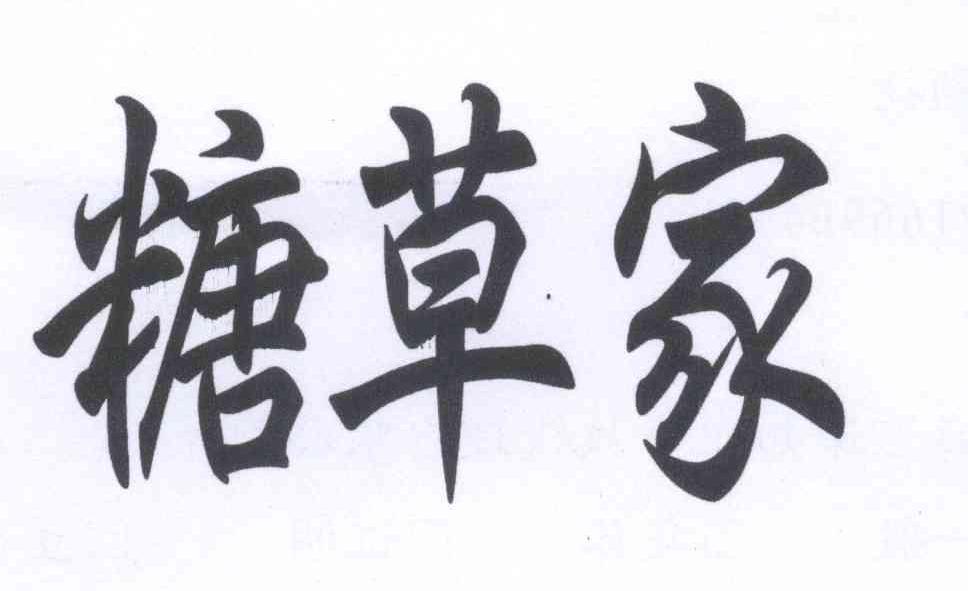 糖草家